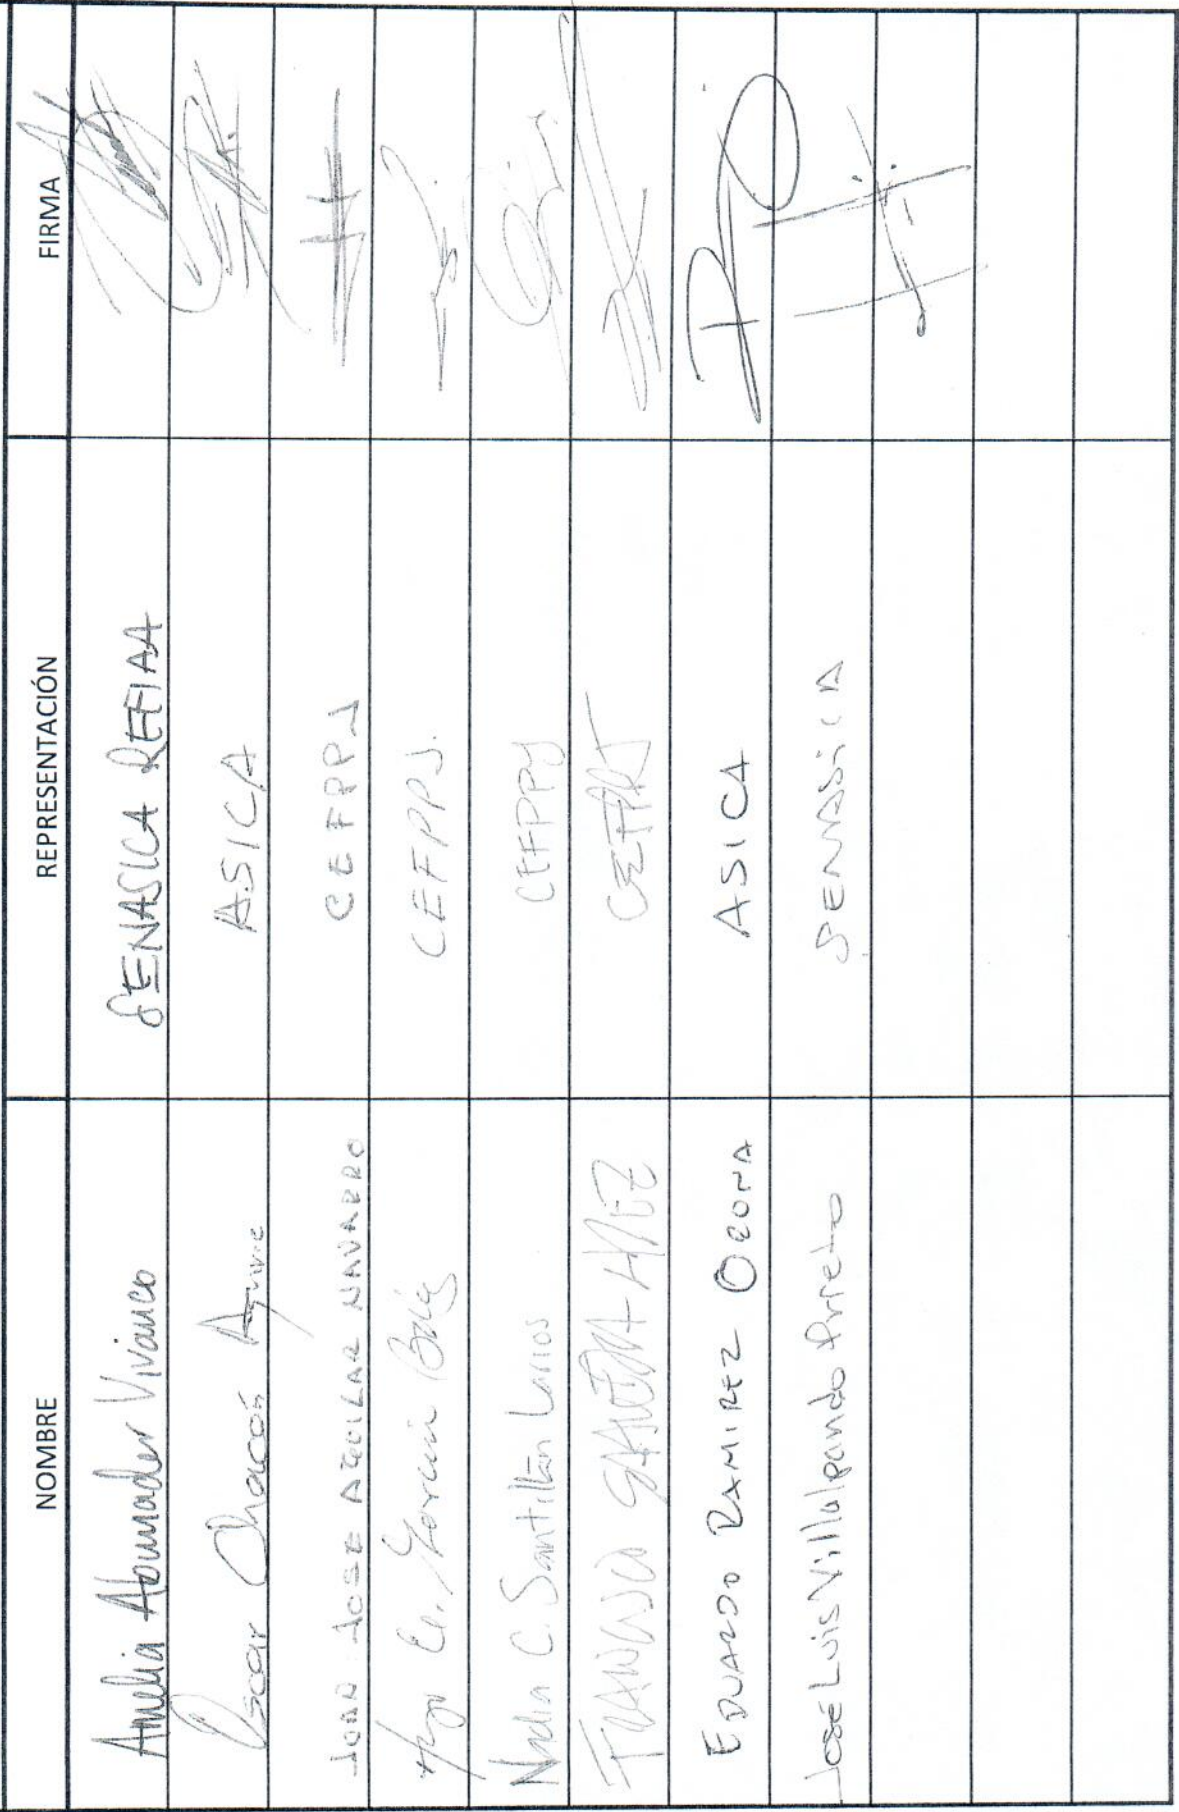 NOMBRE REPRESENTACIÓN FIRMA
Amelia Abumader Vivanco SENASICA REFIAA
Oscar Chacón Aguirre ASICA
JUAN JOSE AGUILAR NAVARRO CEFPPJ
Hugo García CEFPPJ.
Nadia C. Santillán Larios CEFPPJ
CEFPPJ
EDUARDO RAMIREZ OZONA ASICA
José Luis Villalpando Prieto SENASICA